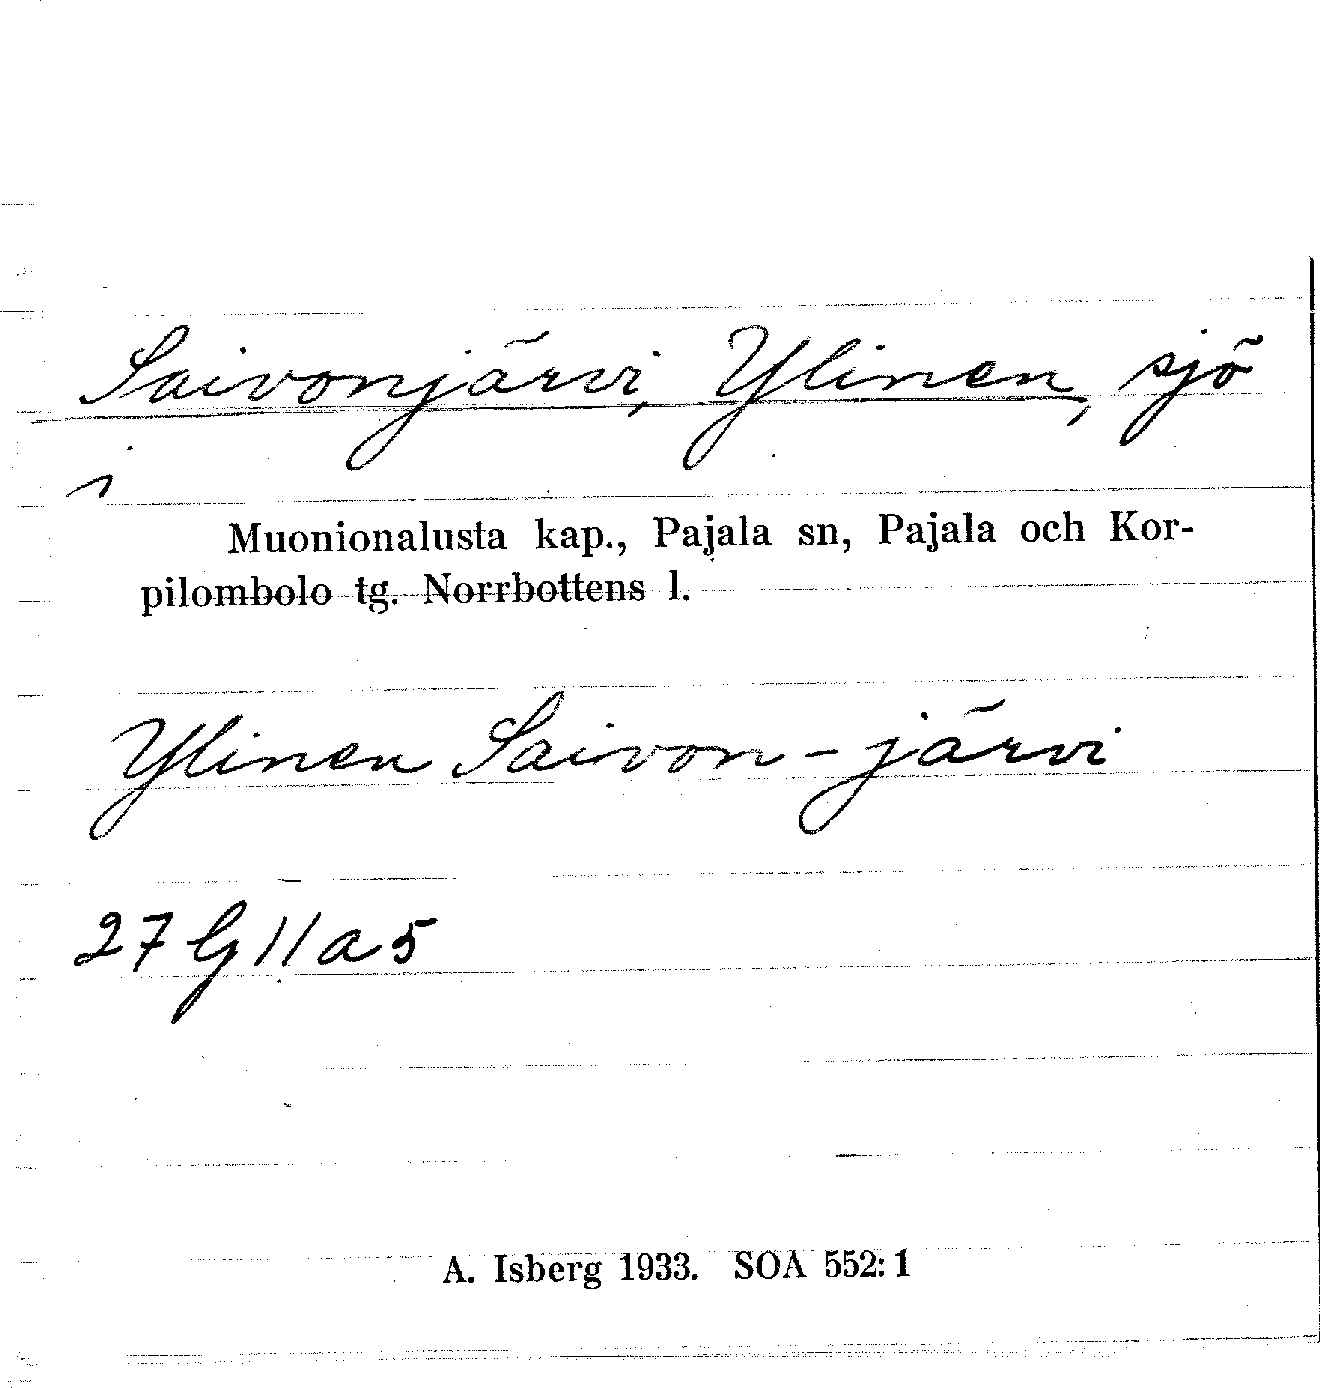 Saivonjärvi, Ylinen, sjö
i
Muonionalusta kap., Pajala sn, Pajala och Kor-
pilombolo tg. Norrbottens l.
Ylinen Saivon-järvi
27 G 11 a 5
A. Isberg 1933. SOA 552:1